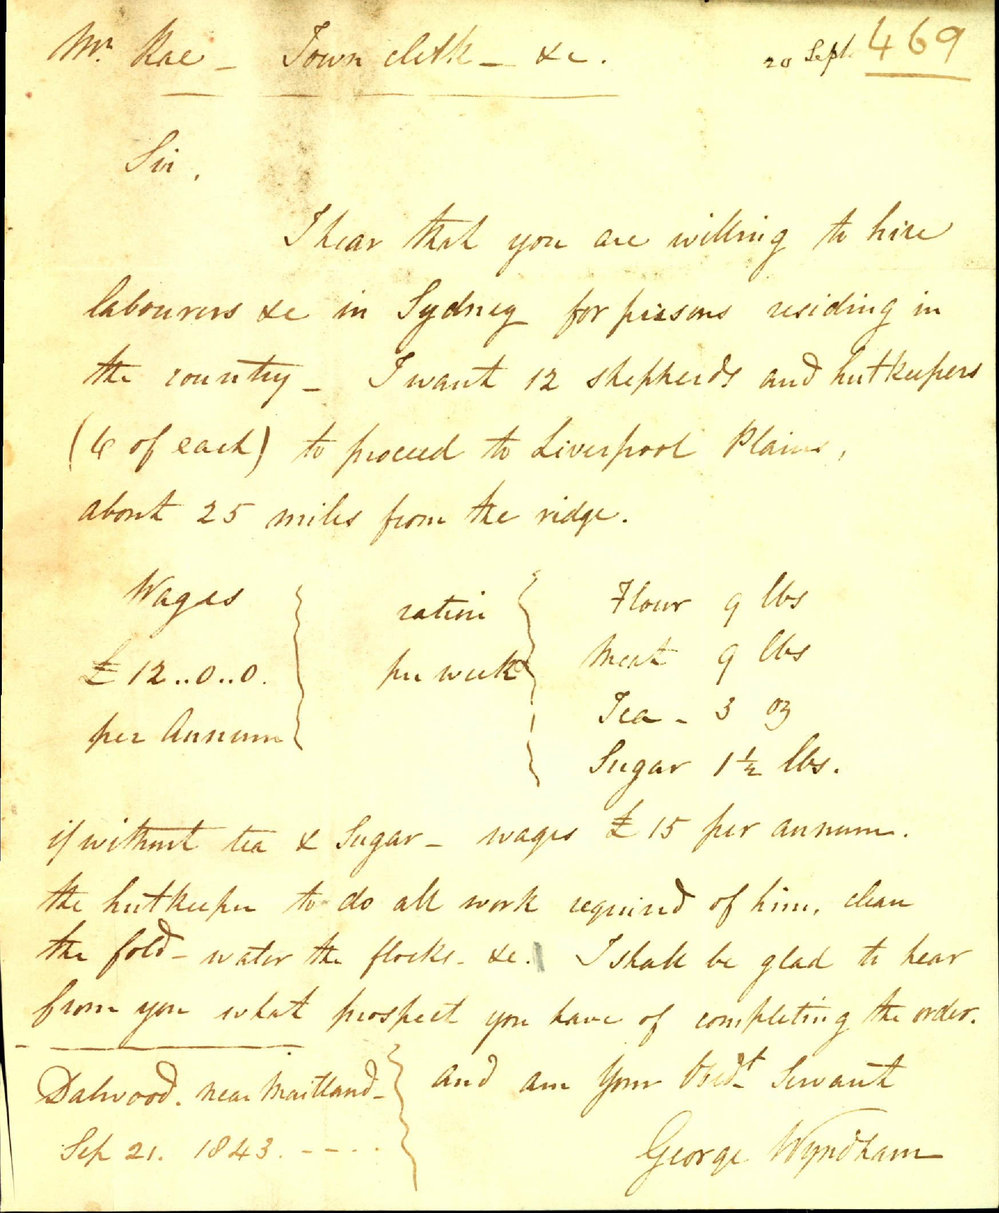 Mr. Rae - Town clerk - &c.
20 Sept. 469
Sir,
I hear that you are willing to hire
labourers &c in Sydney for persons residing in
the country - I want 12 shepherds and hutkeepers
(6 of each) to proceed to Liverpool Plains,
about 25 miles from the ridge.
Wages
£12..0..0.
per Annum
ration
per week
Flour 9 lbs
Meat 9 lbs
Tea - 3 oz
Sugar 1½ lbs.
if without tea & Sugar - wages £15 per annum.
the hutkeeper to do all work required of him, clean
the fold - water the flocks - &c. I shall be glad to hear
from you what prospect you have of completing the order.
and am Your Obedt. Servant
George Wyndham
Dalwood. near Maitland -
Sep 21. 1843. ----